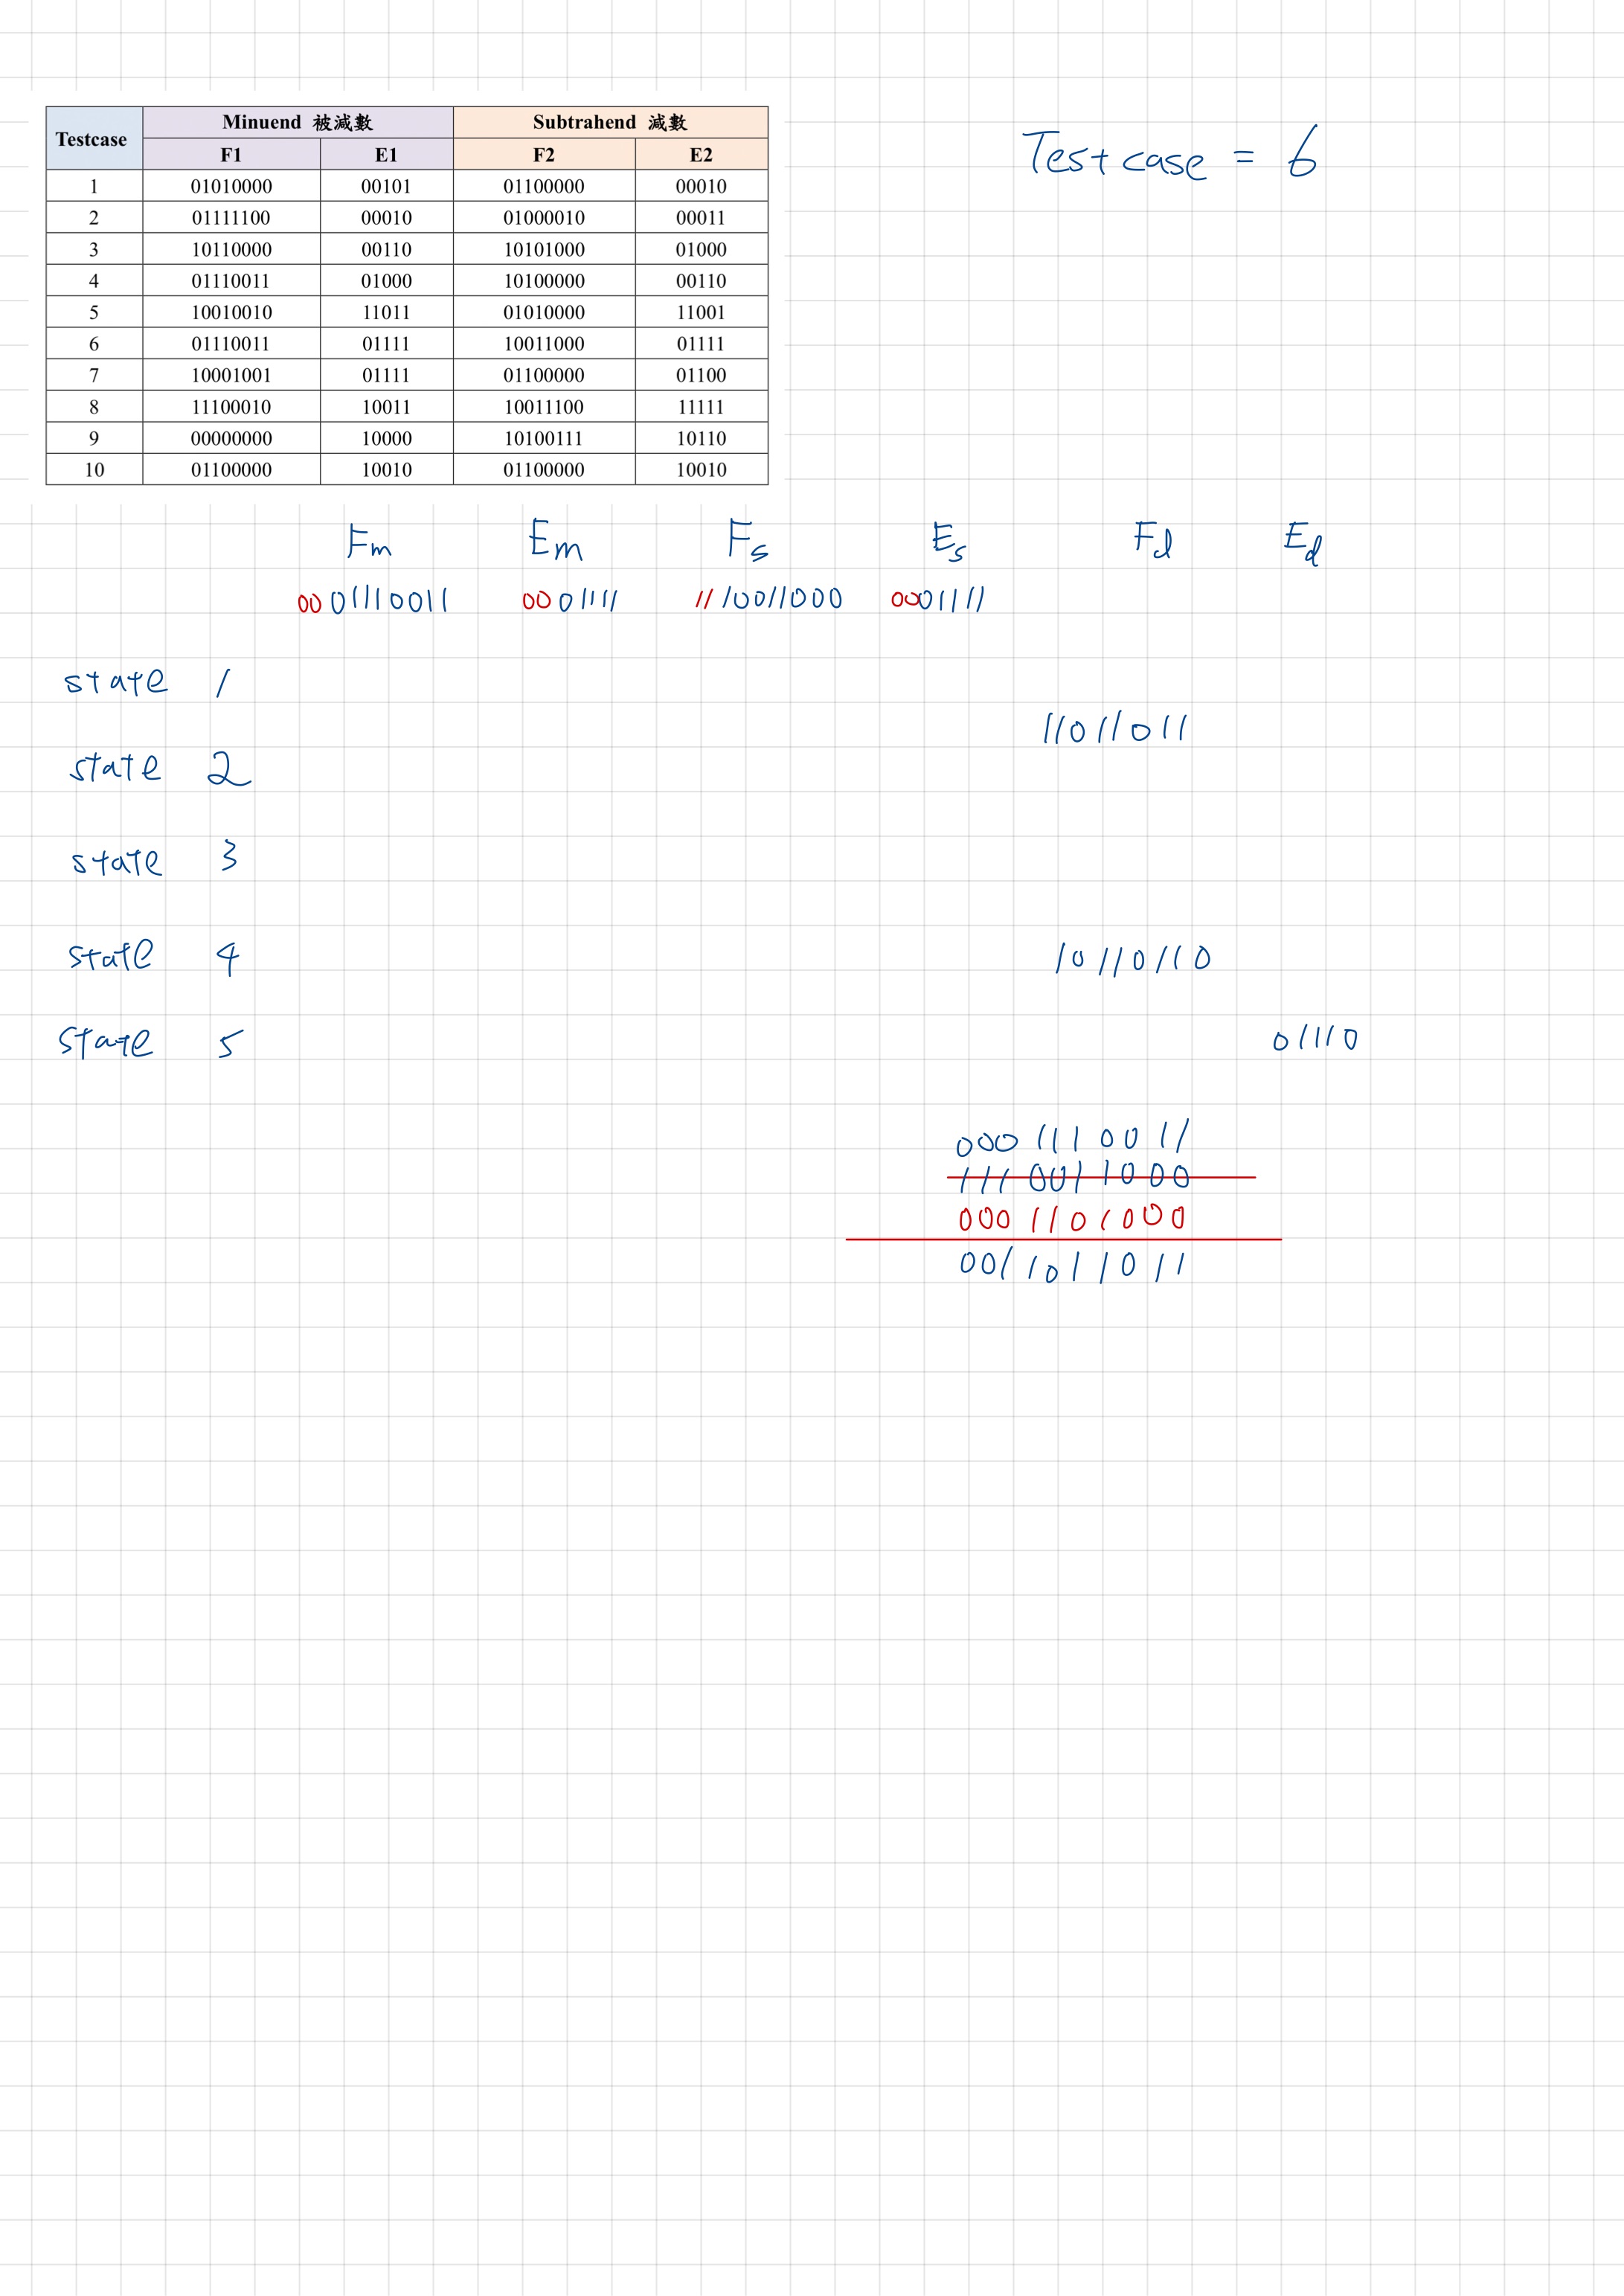 Testcase = 6
Testcase Minuend 被減數 Subtrahend 減數
F1 E1 F2 E2
1 01010000 00101 01100000 00010
2 01111100 00010 01000010 00011
3 10110000 00110 10101000 01000
4 01110011 01000 10100000 00110
5 10010010 11011 01010000 11001
6 01110011 01111 10011000 01111
7 10001001 01111 01100000 01100
8 11100010 10011 10011100 11111
9 00000000 10000 10100111 10110
10 01100000 10010 01100000 10010
Fm Em Fs Es Fd Ed
0001110011 0001111 1110011000 0001111
state 1
11011011
state 2
state 3
state 4 10110110
state 5 01110
0001110011
1110011000
0001101000
0011011011